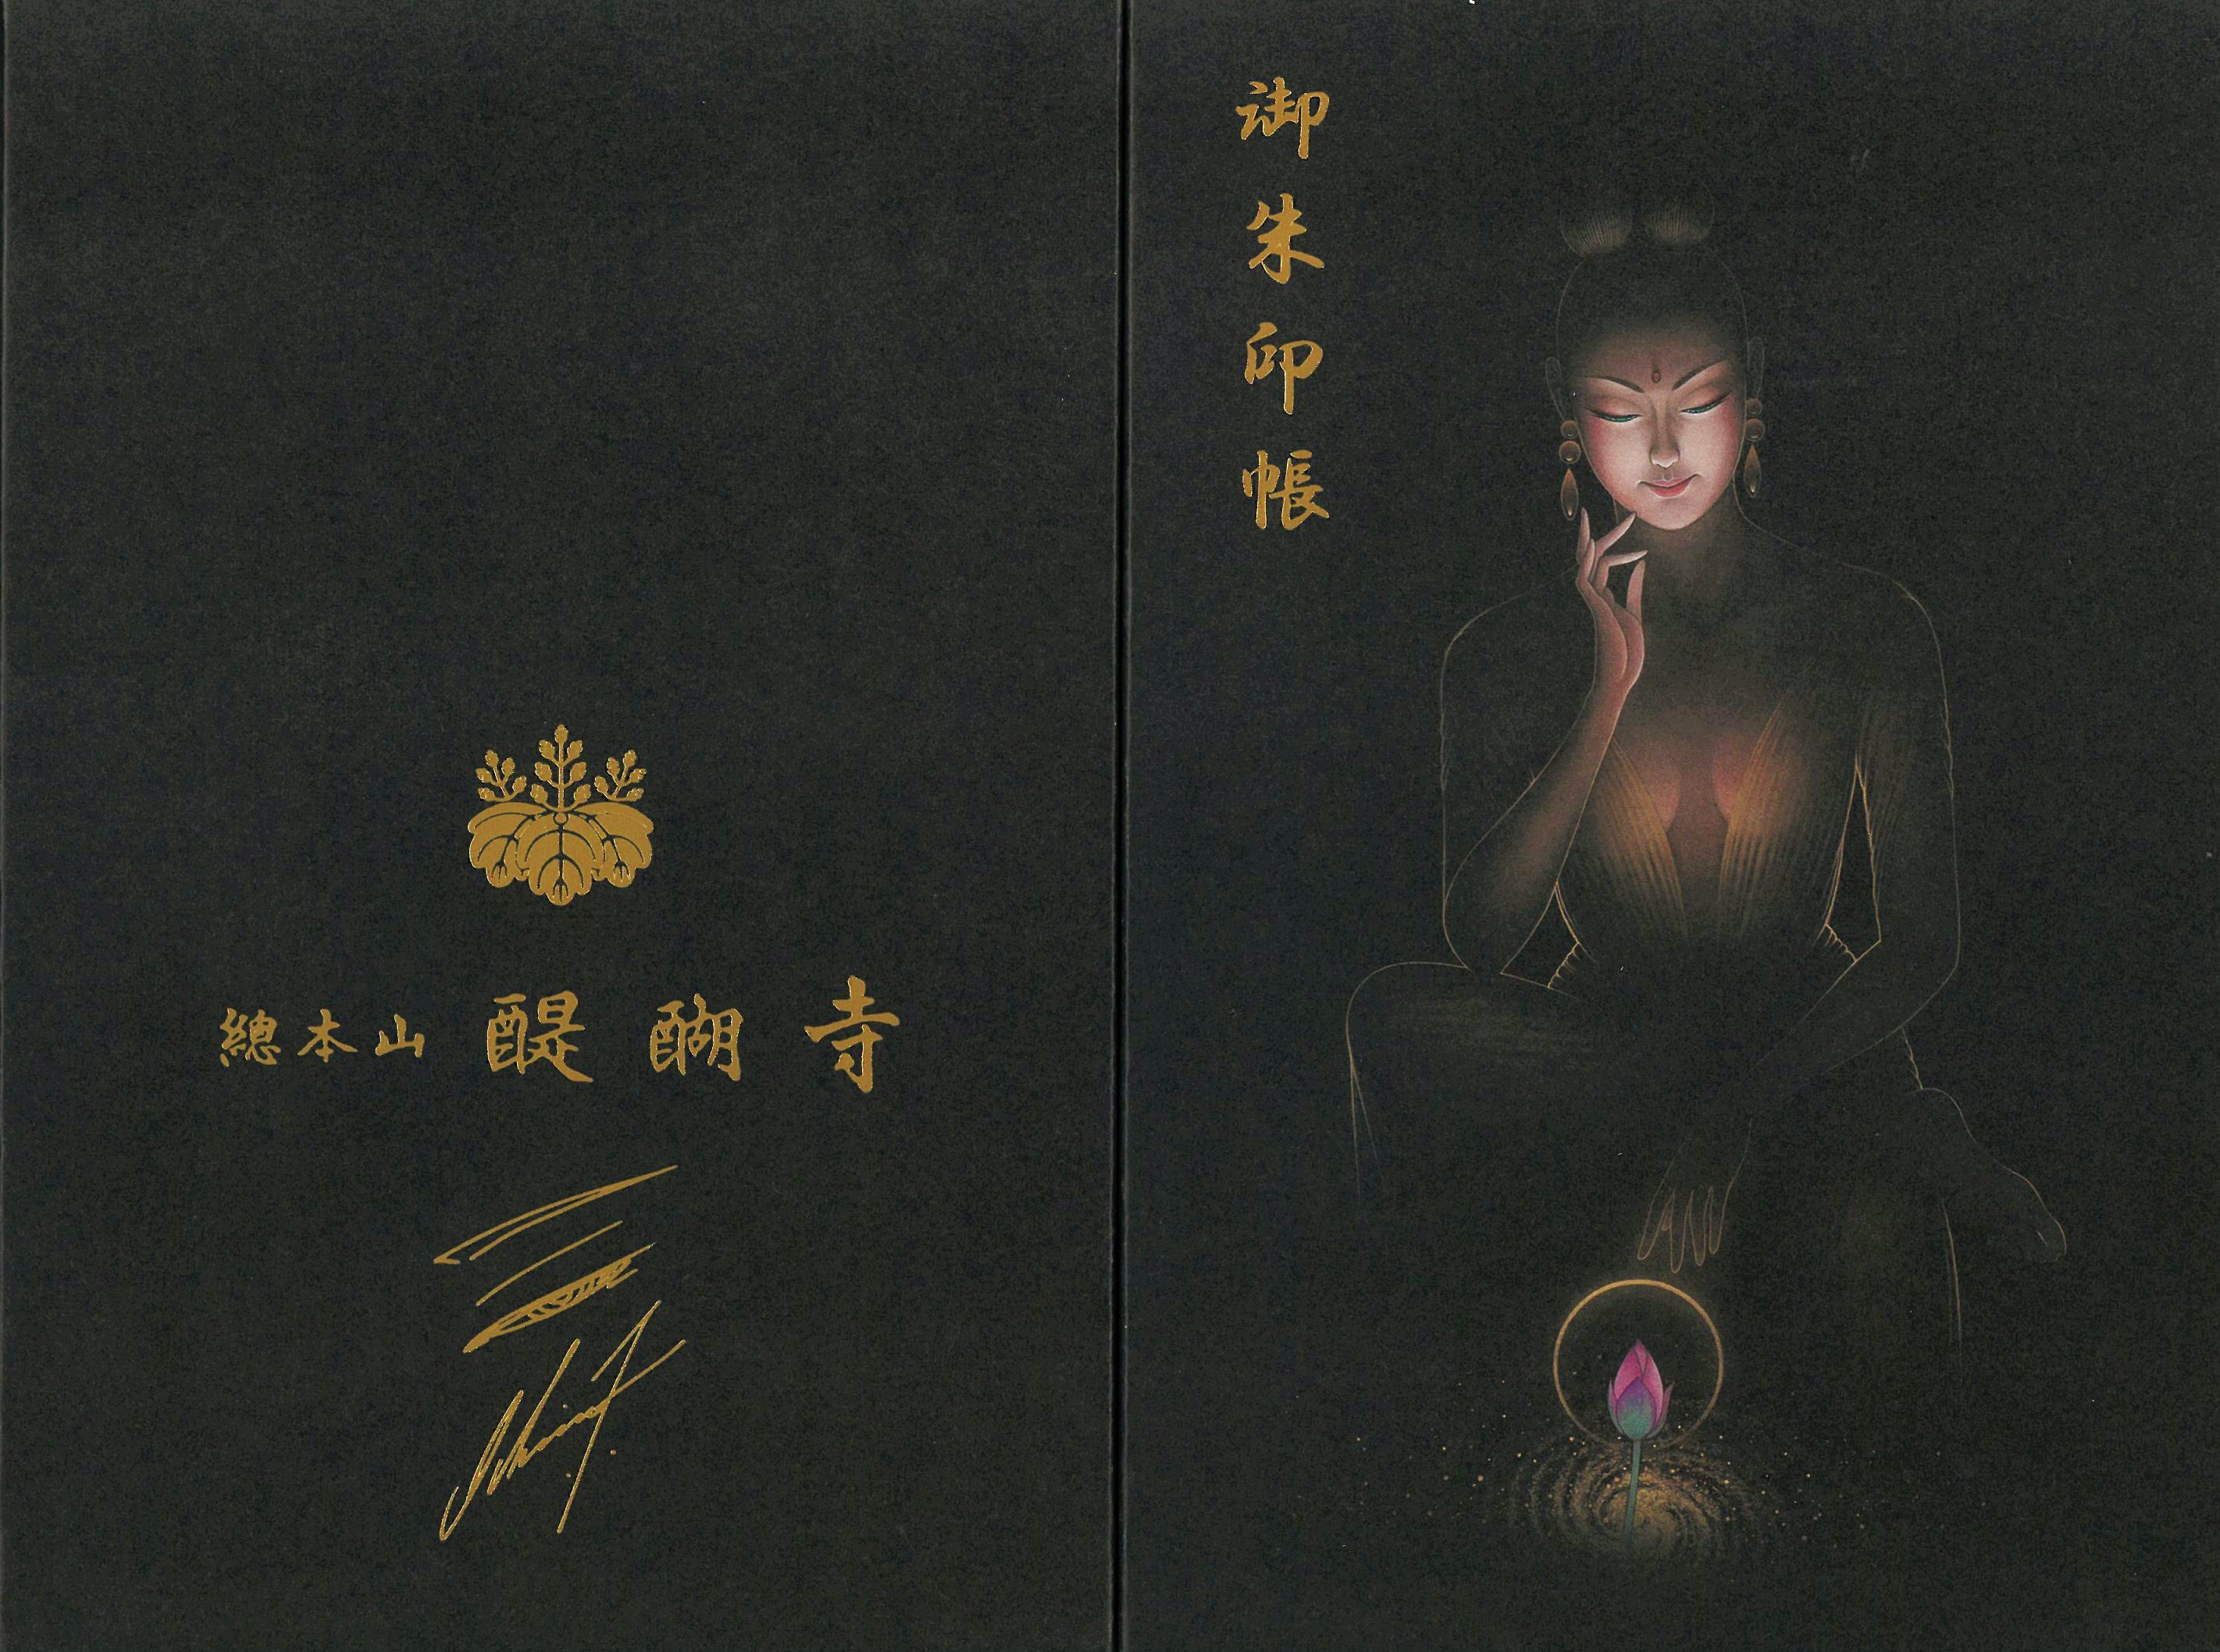 御朱印帳
總本山 醍醐寺